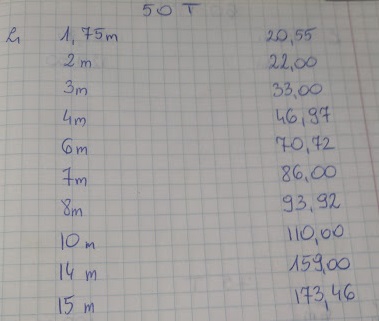 50 T
L 1,75m 20,55
2m 22,00
3m 33,00
4m 46,97
6m 70,72
7m 86,00
8m 93,92
10 m 110,00
14 m 159,00
15 m 173,46